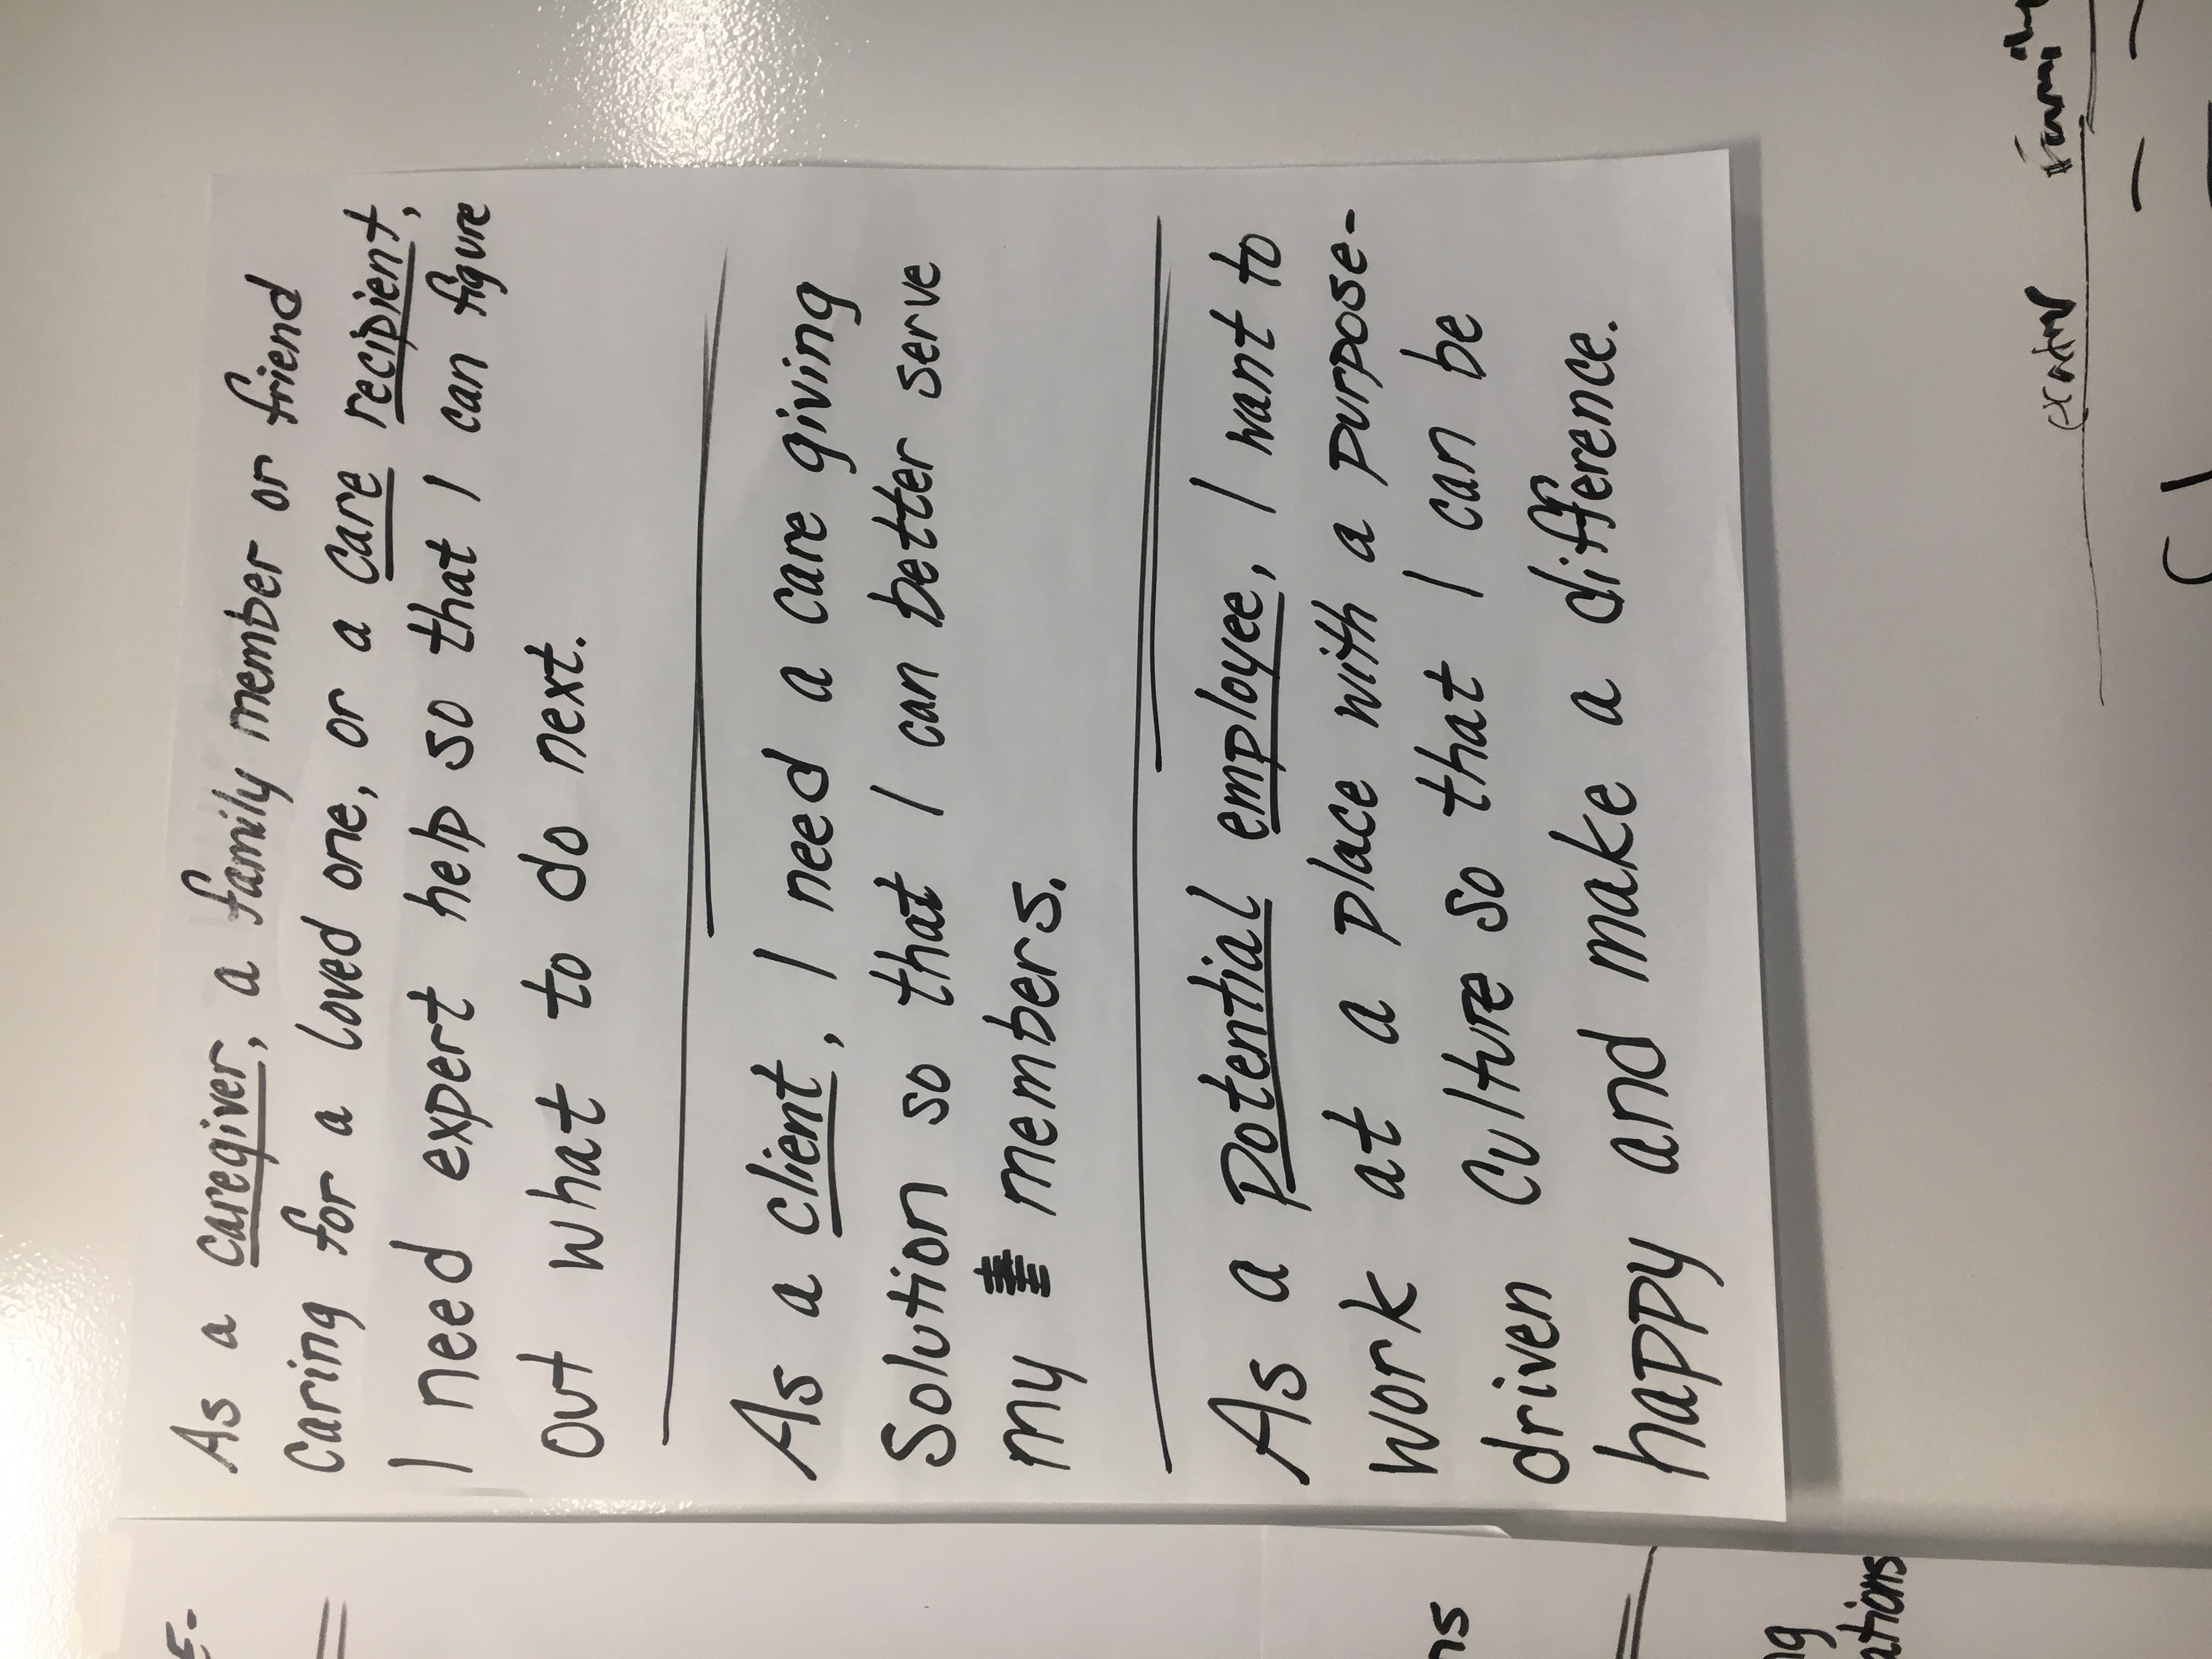 As a caregiver, a family member or friend
caring for a loved one, or a care recipient,
I need expert help so that I can figure
out what to do next.
As a client, I need a care giving
Solution so that I can better serve
my members.
As a potential employee, I want to
work at a place with a purpose-
driven culture so that I can be
happy and make a difference.
E-
ns
ng
ations
Family